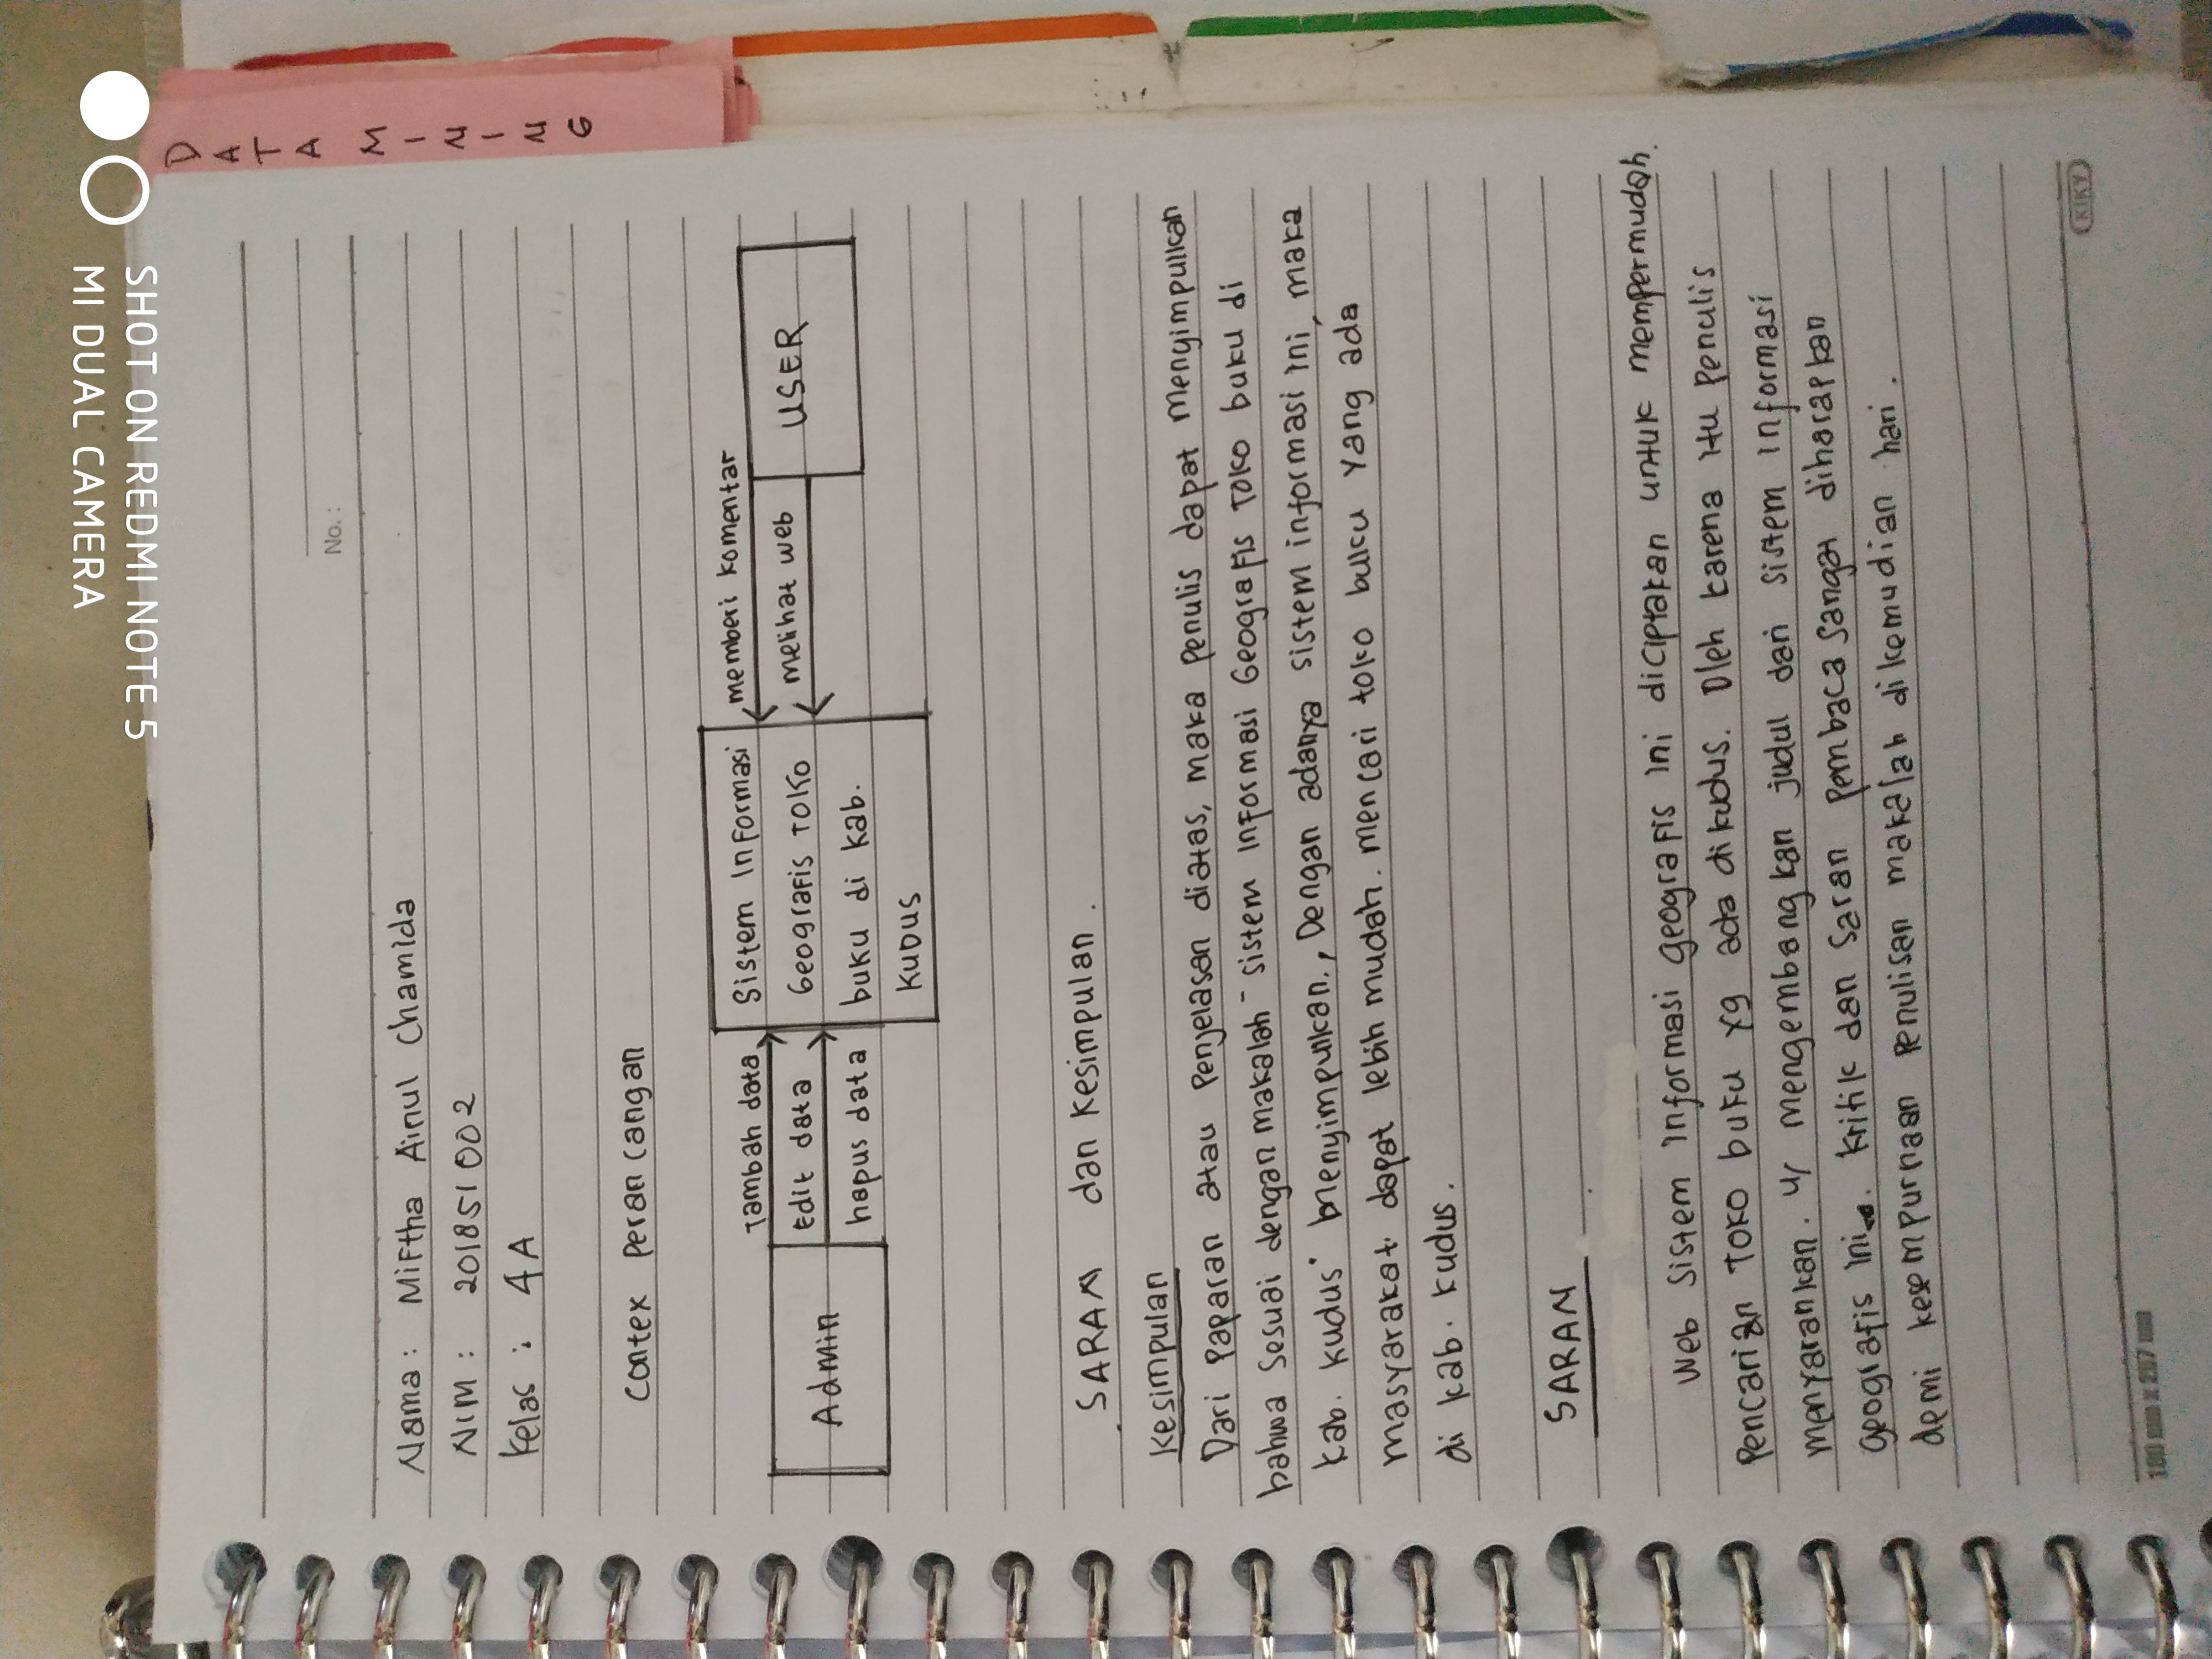 SHOT ON REDMI NOTE 5
MI DUAL CAMERA
DATA MINING
No. :
Nama : Miftha Ainul Chamida
NIM : 201851002
Kelas : 4A
Contex perancangan
Admin
Tambah data
Edit data
hapus data
Sistem Informasi
Geografis Toko
buku di kab.
Kudus
memberi komentar
melihat web
USER
SARAN dan Kesimpulan.
Kesimpulan
Dari Paparan atau Penjelasan diatas, maka penulis dapat menyimpulkan
bahwa sesuai dengan makalah "sistem Informasi Geografis Toko buku di
kab. kudus" menyimpulkan., Dengan adanya sistem informasi ini, maka
masyarakat dapat lebih mudah mencari toko buku yang ada
di kab. kudus.
SARAN
Web Sistem Informasi geografis ini diciptakan untuk mempermudah
Pencarian Toko buku yg ada di kudus. Oleh karena itu Penulis
menyarankan u/ mengembangkan judul dari sistem informasi
geografis ini. Kritik dan Saran pembaca sangat diharapkan
demi kesempurnaan Penulisan makalah dikemudian hari.
KIKY
180 mm x 257 mm